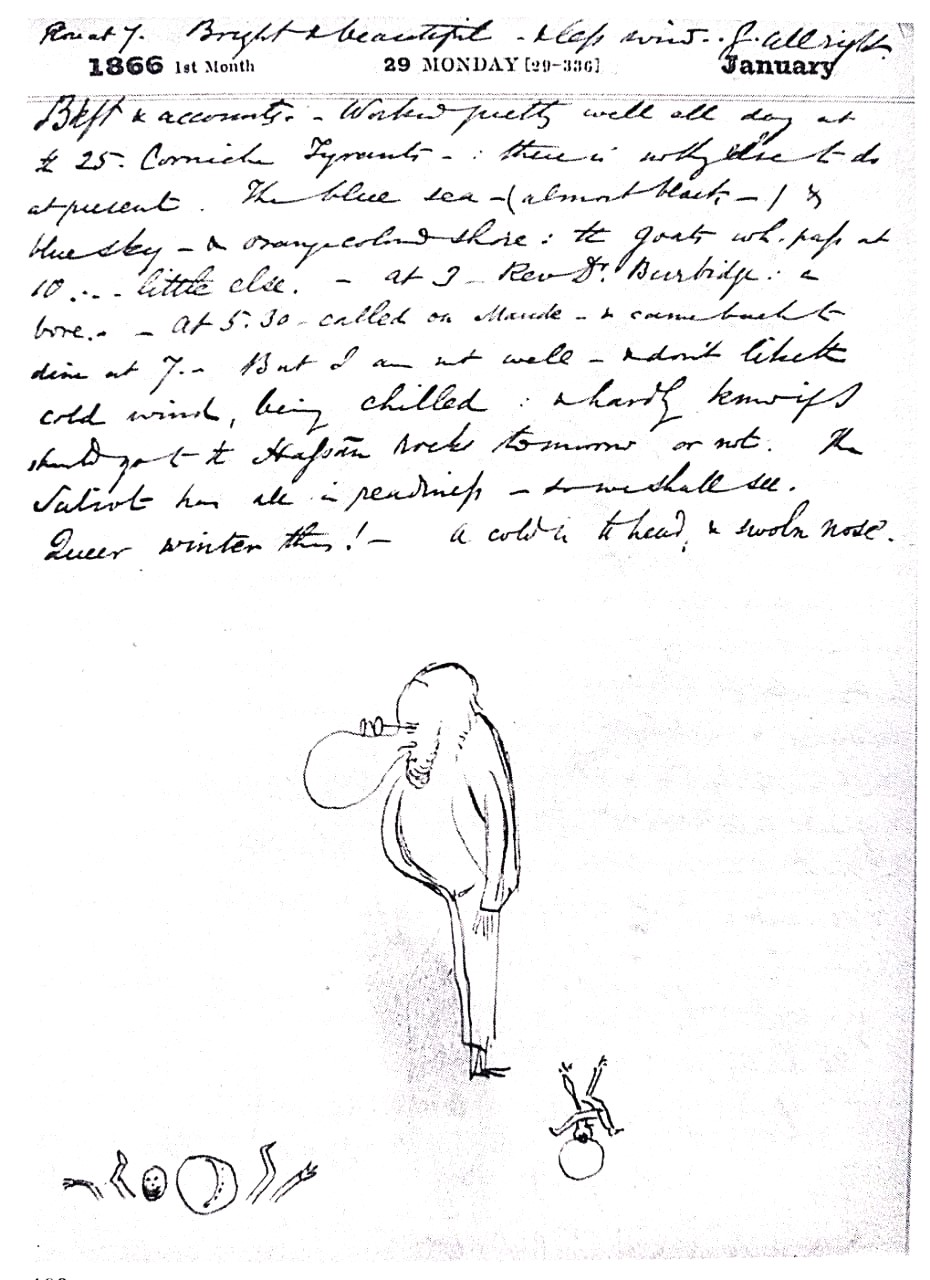 Rose at 7. Bright & beautiful - & less wind. - G. all right.
1866 1st Month 29 MONDAY [29-336] January
Bkft & accounts. - Worked pretty well all day at
£ 25. Corniche Tyrants - : there is nothg else to do
at present. The blue sea - (almost black, -) &
blue sky - & orange colourd shore : the goats wh. pass at
10 ... little else. - at 3 - Rev Dr. Burbidge : a
bore. - - At 5.30 - called on Maude - & came back to
dine at 7. - But I am not well - & don't like the
cold wind, being chilled : & hardly know if I
should go to the Hassān rocks tomorrow or not. The
has all in readiness - so we shall see.
Queer winter this! - A cold in the head, & swoln nose.